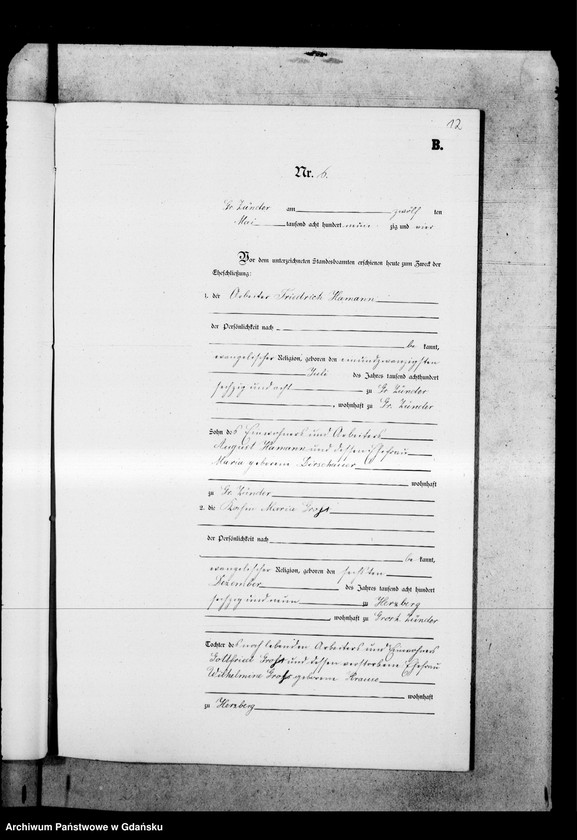 12
B.
Nr. 6.
Gr. Zünder am zwölf ten
Mai tausend acht hundert neun zig und vier
Vor dem unterzeichneten Standesbeamten erschienen heute zum Zweck der
Eheschließung:
1. der Arbeiter Friedrich Hamann
der Persönlichkeit nach
be kannt,
evangelischer Religion, geboren den einundzwanzigsten
Juli des Jahres tausend achthundert
sechzig und acht zu Gr. Zünder
, wohnhaft zu Gr. Zünder
Sohn des Einwohners und Arbeiters
August Hamann und dessen Ehefrau
Maria geborene
wohnhaft
zu Gr. Zünder
2. die Maria Groß
der Persönlichkeit nach
be kannt,
evangelischer Religion, geboren den sechsten
Dezember des Jahres tausend acht hundert
sechzig und neun zu Herzberg
, wohnhaft zu Groß Zünder
Tochter des noch lebenden Arbeiters und Einwohners
Gottfried Groß und dessen verstorbene Ehefrau
Wilhelmine Groß geborene Krause
wohnhaft
zu Herzberg
Archiwum Państwowe w Gdańsku